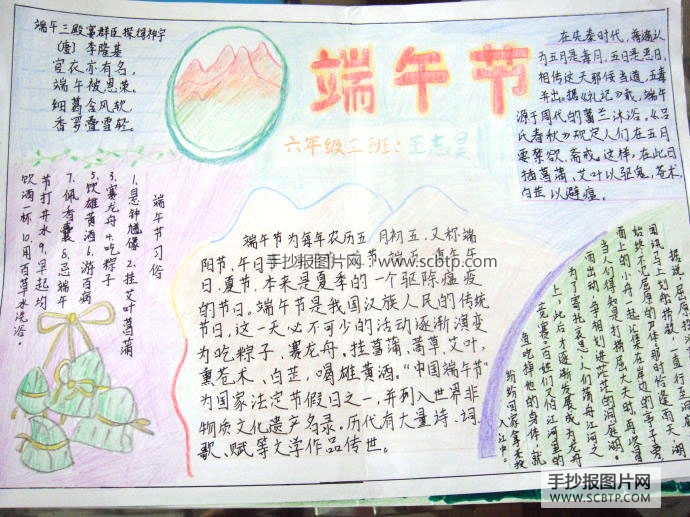 端午三殿宴群臣探得神字
(唐) 李隆基
宜衣亦有名,
端午被恩荣。
细葛含风软,
香罗叠雪轻。
端午节
六年级三班:王志昱
在先秦时代,普遍认
为五月是毒月,五日是恶日,
相传这天邪佞当道,五毒
并出。据《礼记》载,端午
源于周代的蓄兰沐浴。《吕
氏春秋》规定人们在五月
要禁欲、斋戒。这样,在此日
插菖蒲、艾叶以驱鬼,苍术、
白芷以避瘟。
端午节习俗
1.悬钟馗像 2.挂艾叶菖蒲
3.赛龙舟 4.吃粽子
5.饮雄黄酒 6.游百病
7.佩香囊 8.忌端午
节打井水 9.早起均
饮酒一杯 10.用百草水洗浴。
端午节为每年农历五月初五,又称端
阳节、午日
日、夏节,本来是夏季的一个驱除瘟疫
的节日。端午节是我国汉族人民的传统
节日,这一天必不可少的活动逐渐演变
为吃粽子、赛龙舟、挂菖蒲、蒿草、艾叶,
熏苍术、白芷,喝雄黄酒。“中国端午节”
为国家法定节假日之一,并列入世界非
物质文化遗产名录。历代有大量诗、词、
歌、赋等文学作品传世。
手抄报图片网
www.scbtp.com
据说,屈原投
国讯马上划船捞救,一直行至洞庭
始终不见屈原的尸体。那时,恰逢雨天,湖
面上的小舟一起汇集在岸边的亭子旁。
当人们得知是打捞屈大夫时,再次冒
雨出动,争相划进茫茫的洞庭湖。
为了寄托哀思,人们荡舟江河之
上,此后才逐渐发展成为龙舟
竞赛。百姓们又怕江河里的
鱼吃掉他的身体,就
纷纷回家拿米
入江中。
手抄报图片网
WWW.SCBTP.COM